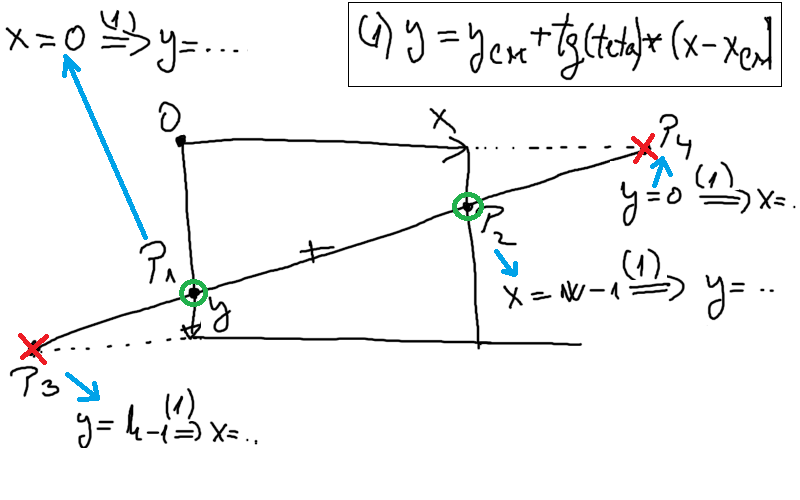 x = 0 (1) ⟹ y = ...
(1) y = y_CM + tg(teta) * (x - x_CM)
O
x
P4
y = 0 (1) ⟹ x = .
P2
P1
x = w - 1 (1) ⟹ y = ..
y
P3
y = h - 1 (1) ⟹ x = ..